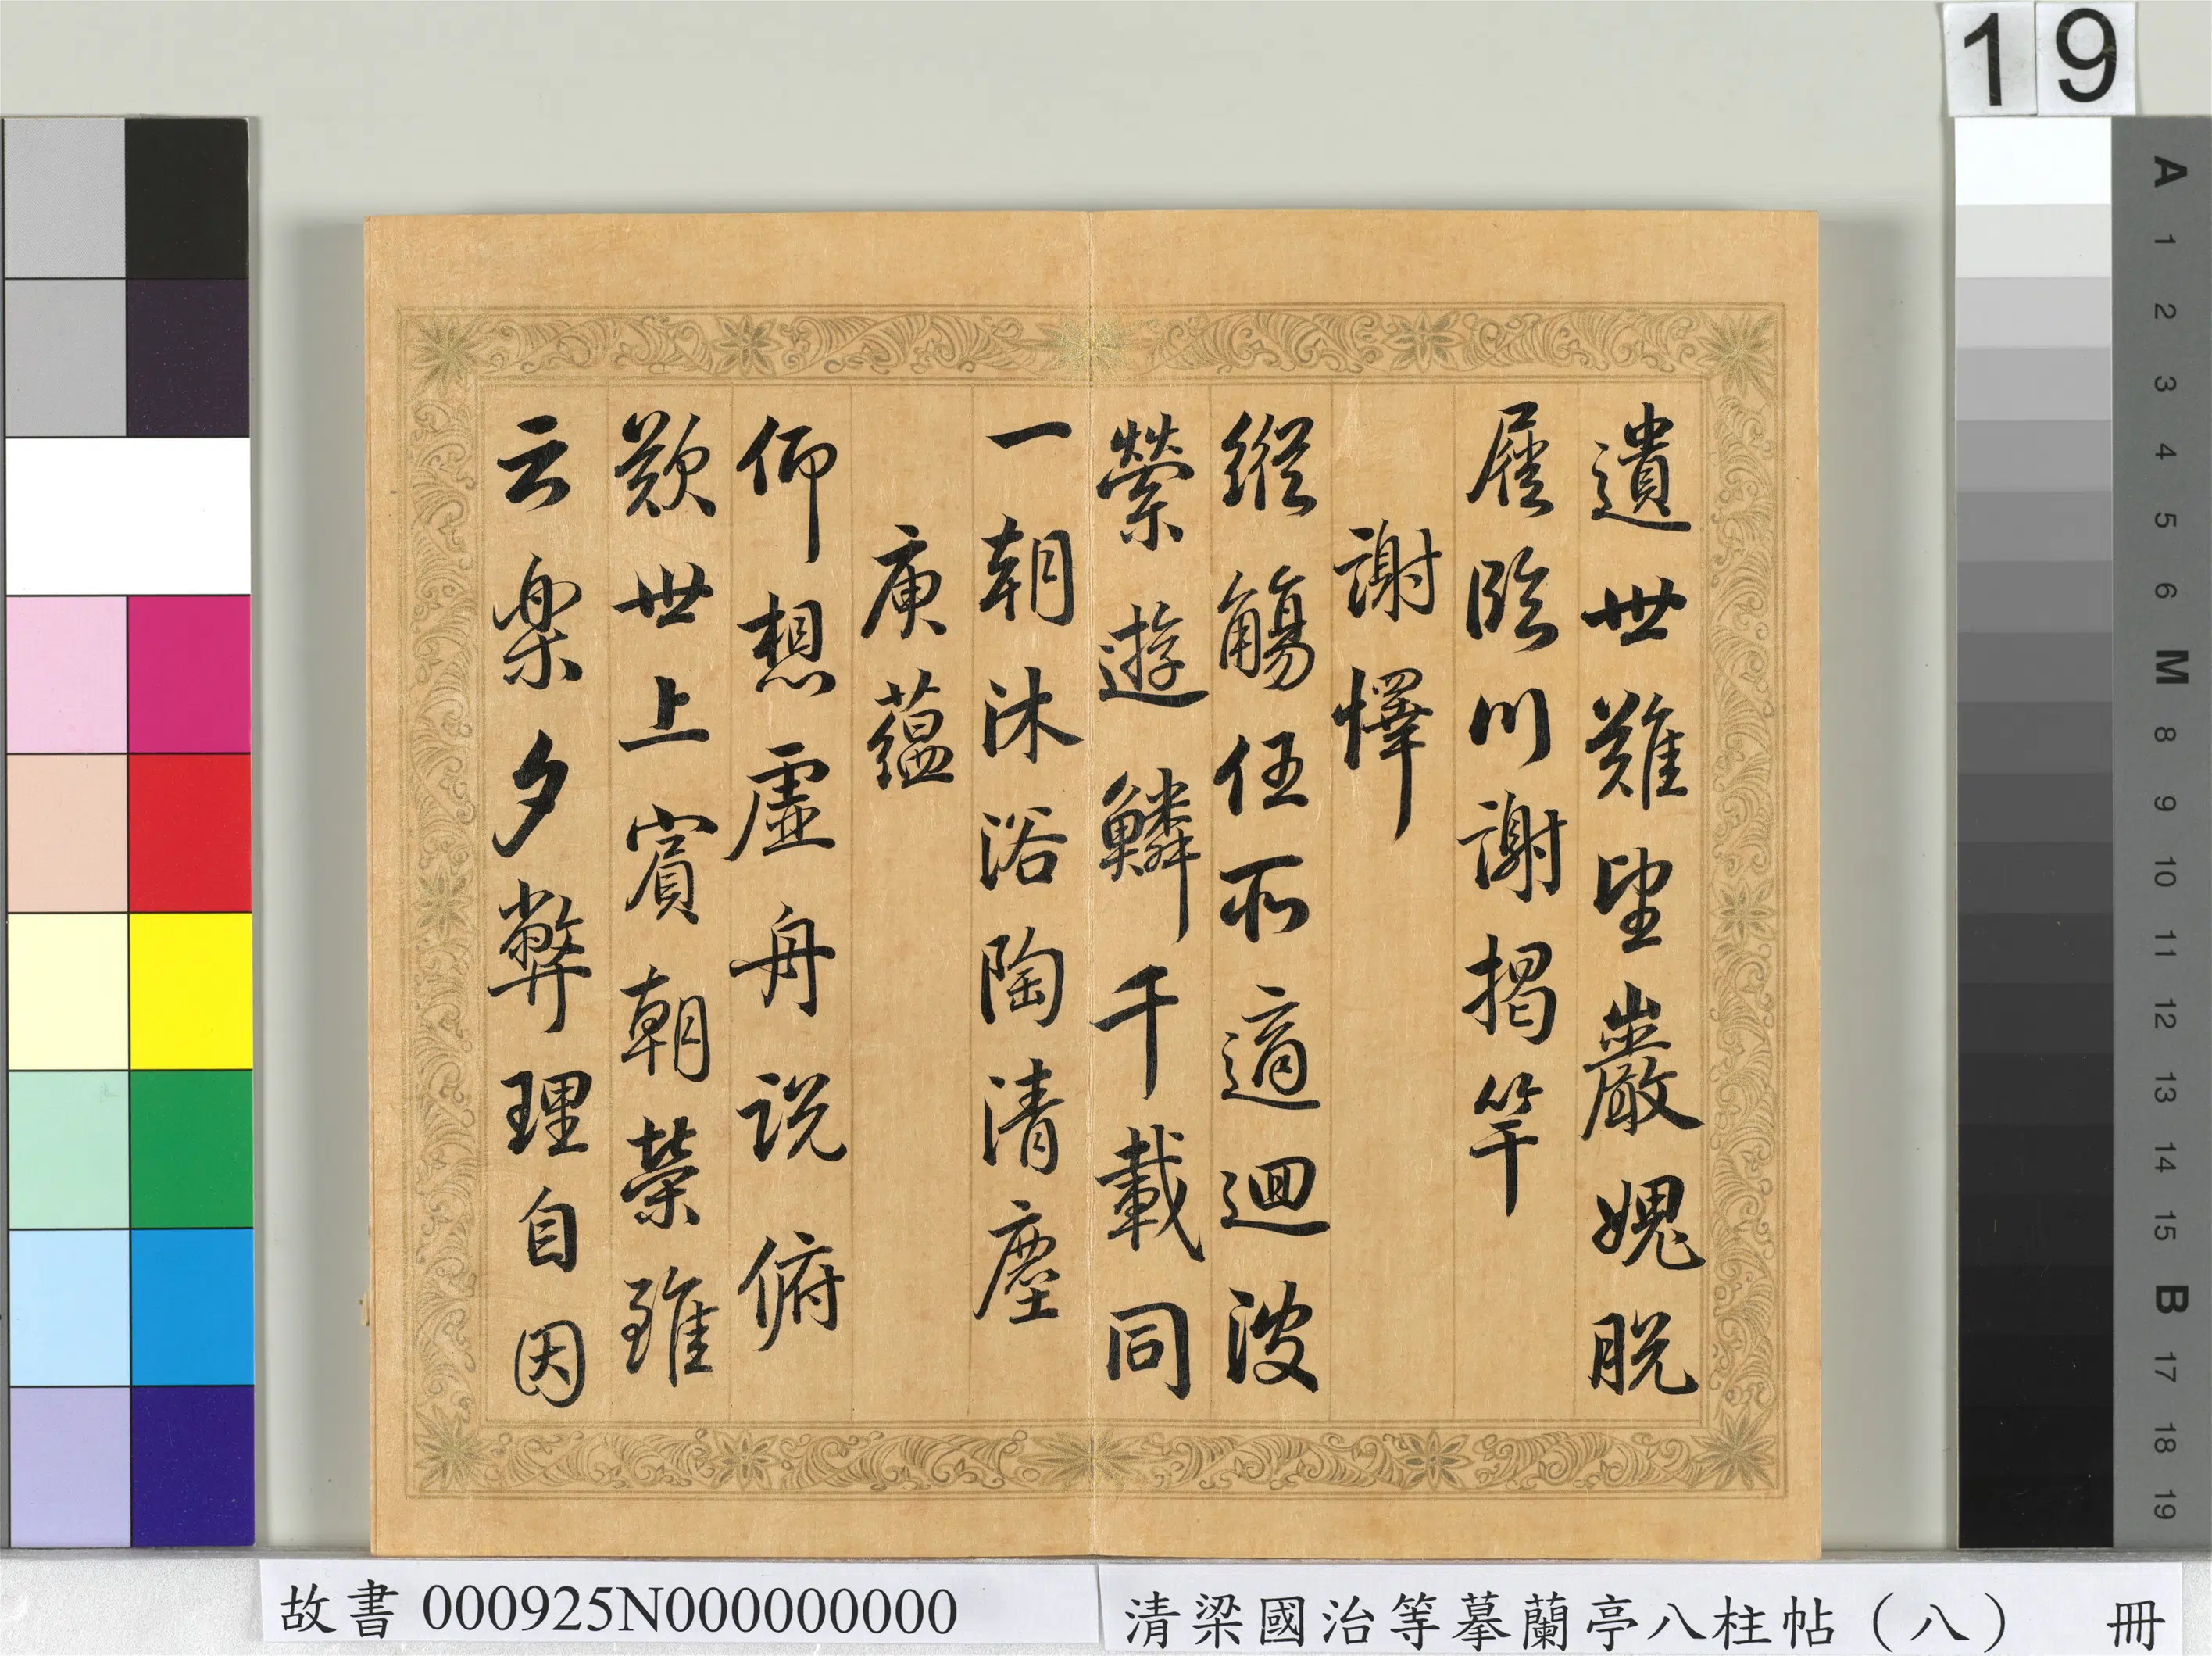 19
遺世難望巖媿脫
屣臨川謝揭竿
謝懌
縱觴任所適迴波
縈遊鱗千載同
一朝沐浴陶清塵
庾蘊
仰想虛舟說俯
歎世上賓朝榮雖
云樂夕弊理自因
A 1 2 3 4 5 6 M 8 9 10 11 12 13 14 15 B 17 18 19
故書 000925N000000000
清梁國治等摹蘭亭八柱帖（八） 冊